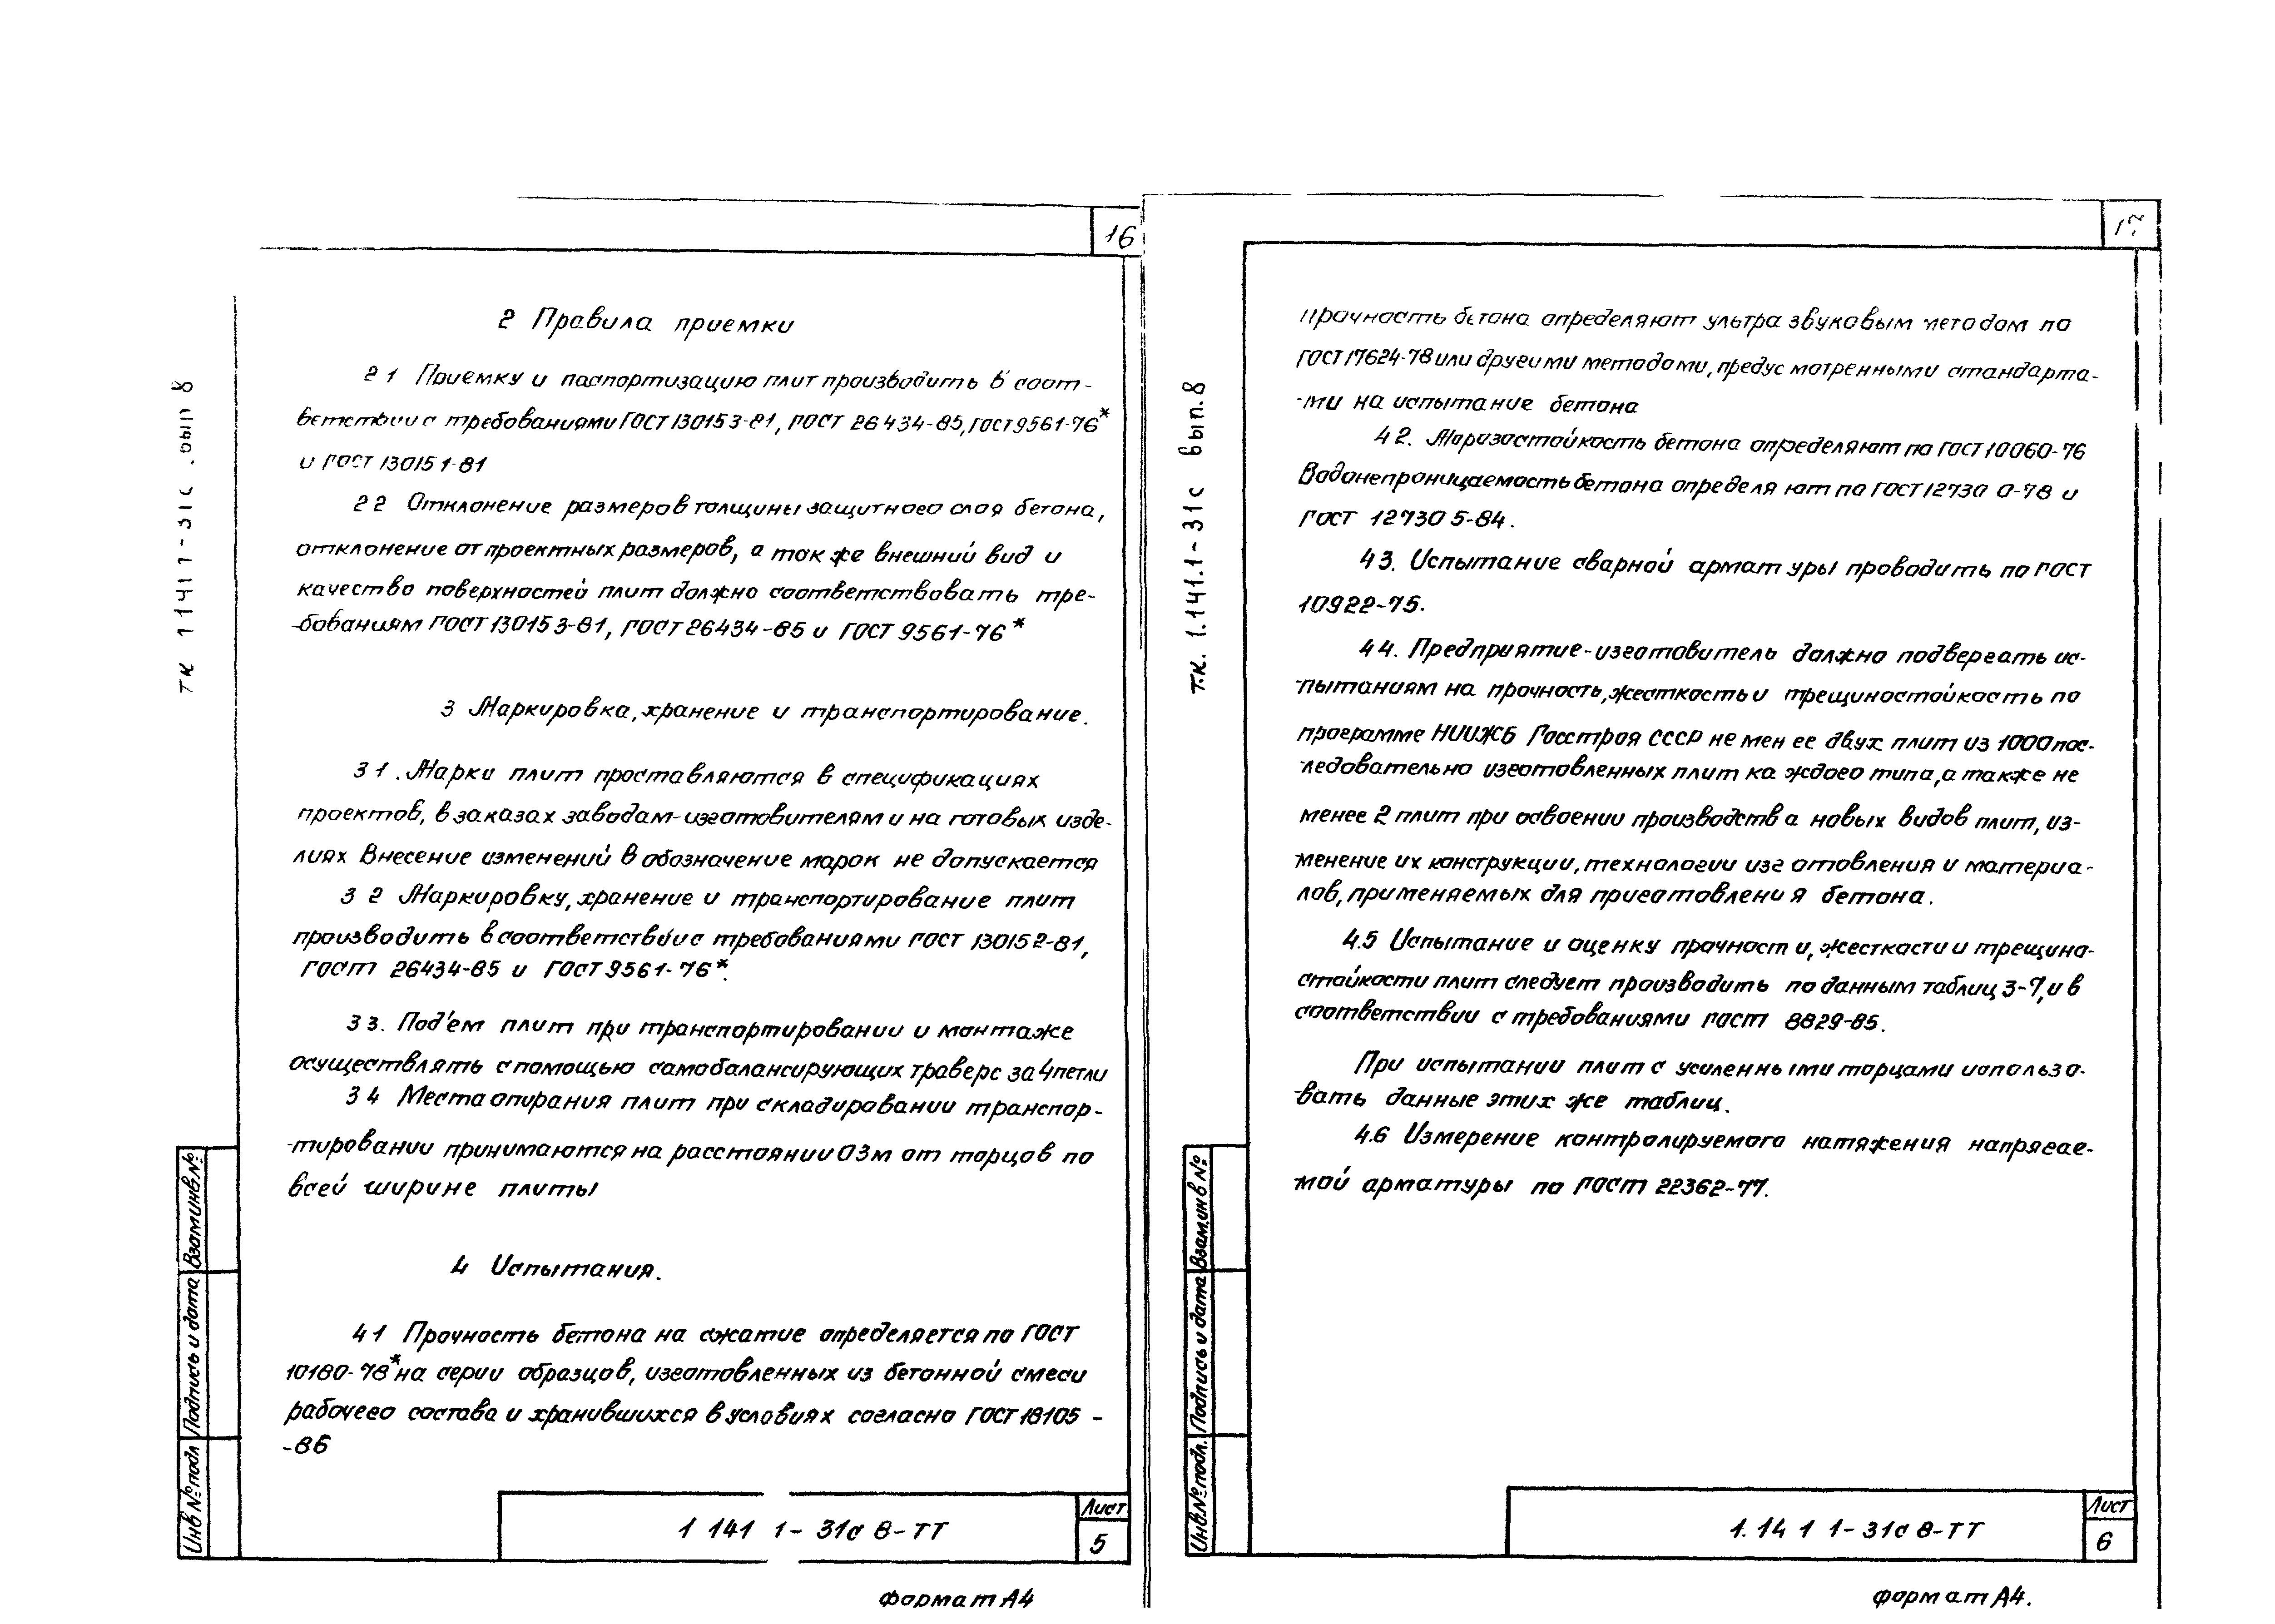 16
2 Правила приемки
2 1 Приемку и паспортизацию плит производить в соот-
ветствии с требованиями ГОСТ 13015 3-81, ГОСТ 26434-85, ГОСТ 9561-76*
и ГОСТ 13015 1-81
2 2 Отклонение размеров толщины защитного слоя бетона,
отклонение от проектных размеров, а также внешний вид и
качество поверхностей плит должно соответствовать тре-
-бованиям ГОСТ 13015 3-81, ГОСТ 26434-85 и ГОСТ 9561-76*
3 Маркировка, хранение и транспортирование.
3 1. Марки плит проставляются в спецификациях
проектов, в заказах заводам-изготовителям и на готовых изде-
лиях Внесение изменений в обозначение марок не допускается
3 2 Маркировку, хранение и транспортирование плит
производить в соответствии с требованиями ГОСТ 13015 2-81,
ГОСТ 26434-85 и ГОСТ 9561-76*.
3 3. Под'ем плит при транспортировании и монтаже
осуществлять с помощью самобалансирующих траверс за 4 петли
3 4 Места опирания плит при складировании транспор-
-тировании принимаются на расстоянии 0 3м от торцов по
всей ширине плиты
4 Испытания.
4 1 Прочность бетона на сжатие определяется по ГОСТ
10180-78* на серии образцов, изготовленных из бетонной смеси
рабочего состава и хранившихся в условиях согласно ГОСТ 18105 -
-86
тк 1 141 1-31с .вып 8
Взам инв №
Подпись и дата
Инв № подл
1 141 1-31с 8-ТТ
Лист
5
формат А4
17
прочность бетона определяют ультразвуковым методом по
ГОСТ 17624-78 или другими методами, предусмотренными стандарта-
-ми на испытание бетона
4 2. Морозостойкость бетона определяют по ГОСТ 10060-76
Водонепроницаемость бетона определяют по ГОСТ 12730 0-78 и
ГОСТ 12730 5-84.
4 3. Испытание сварной арматуры проводить по ГОСТ
10922-75.
4 4. Предприятие-изготовитель должно подвергать ис-
-пытаниям на прочность, жесткость и трещиностойкость по
программе НИИЖБ Госстроя СССР не менее двух плит из 1000 пос-
-ледовательно изготовленных плит каждого типа, а также не
менее 2 плит при освоении производства новых видов плит, из-
менение их конструкции, технологии изготовления и материа-
лов, применяемых для приготовления бетона.
4.5 Испытание и оценку прочности, жесткости и трещино-
стойкости плит следует производить по данным таблиц 3-7, и в
соответствии с требованиями ГОСТ 8829-85.
При испытании плит с усиленными торцами использо-
-вать данные этих же таблиц.
4.6 Измерение контролируемого натяжения напрягае-
мой арматуры по ГОСТ 22362-77.
т.к. 1.141.1-31с вып.8
Взам.инв №
Подпись и дата
Инв.№ подл.
1.14 1 1-31с 8-ТТ
Лист
6
формат А4.